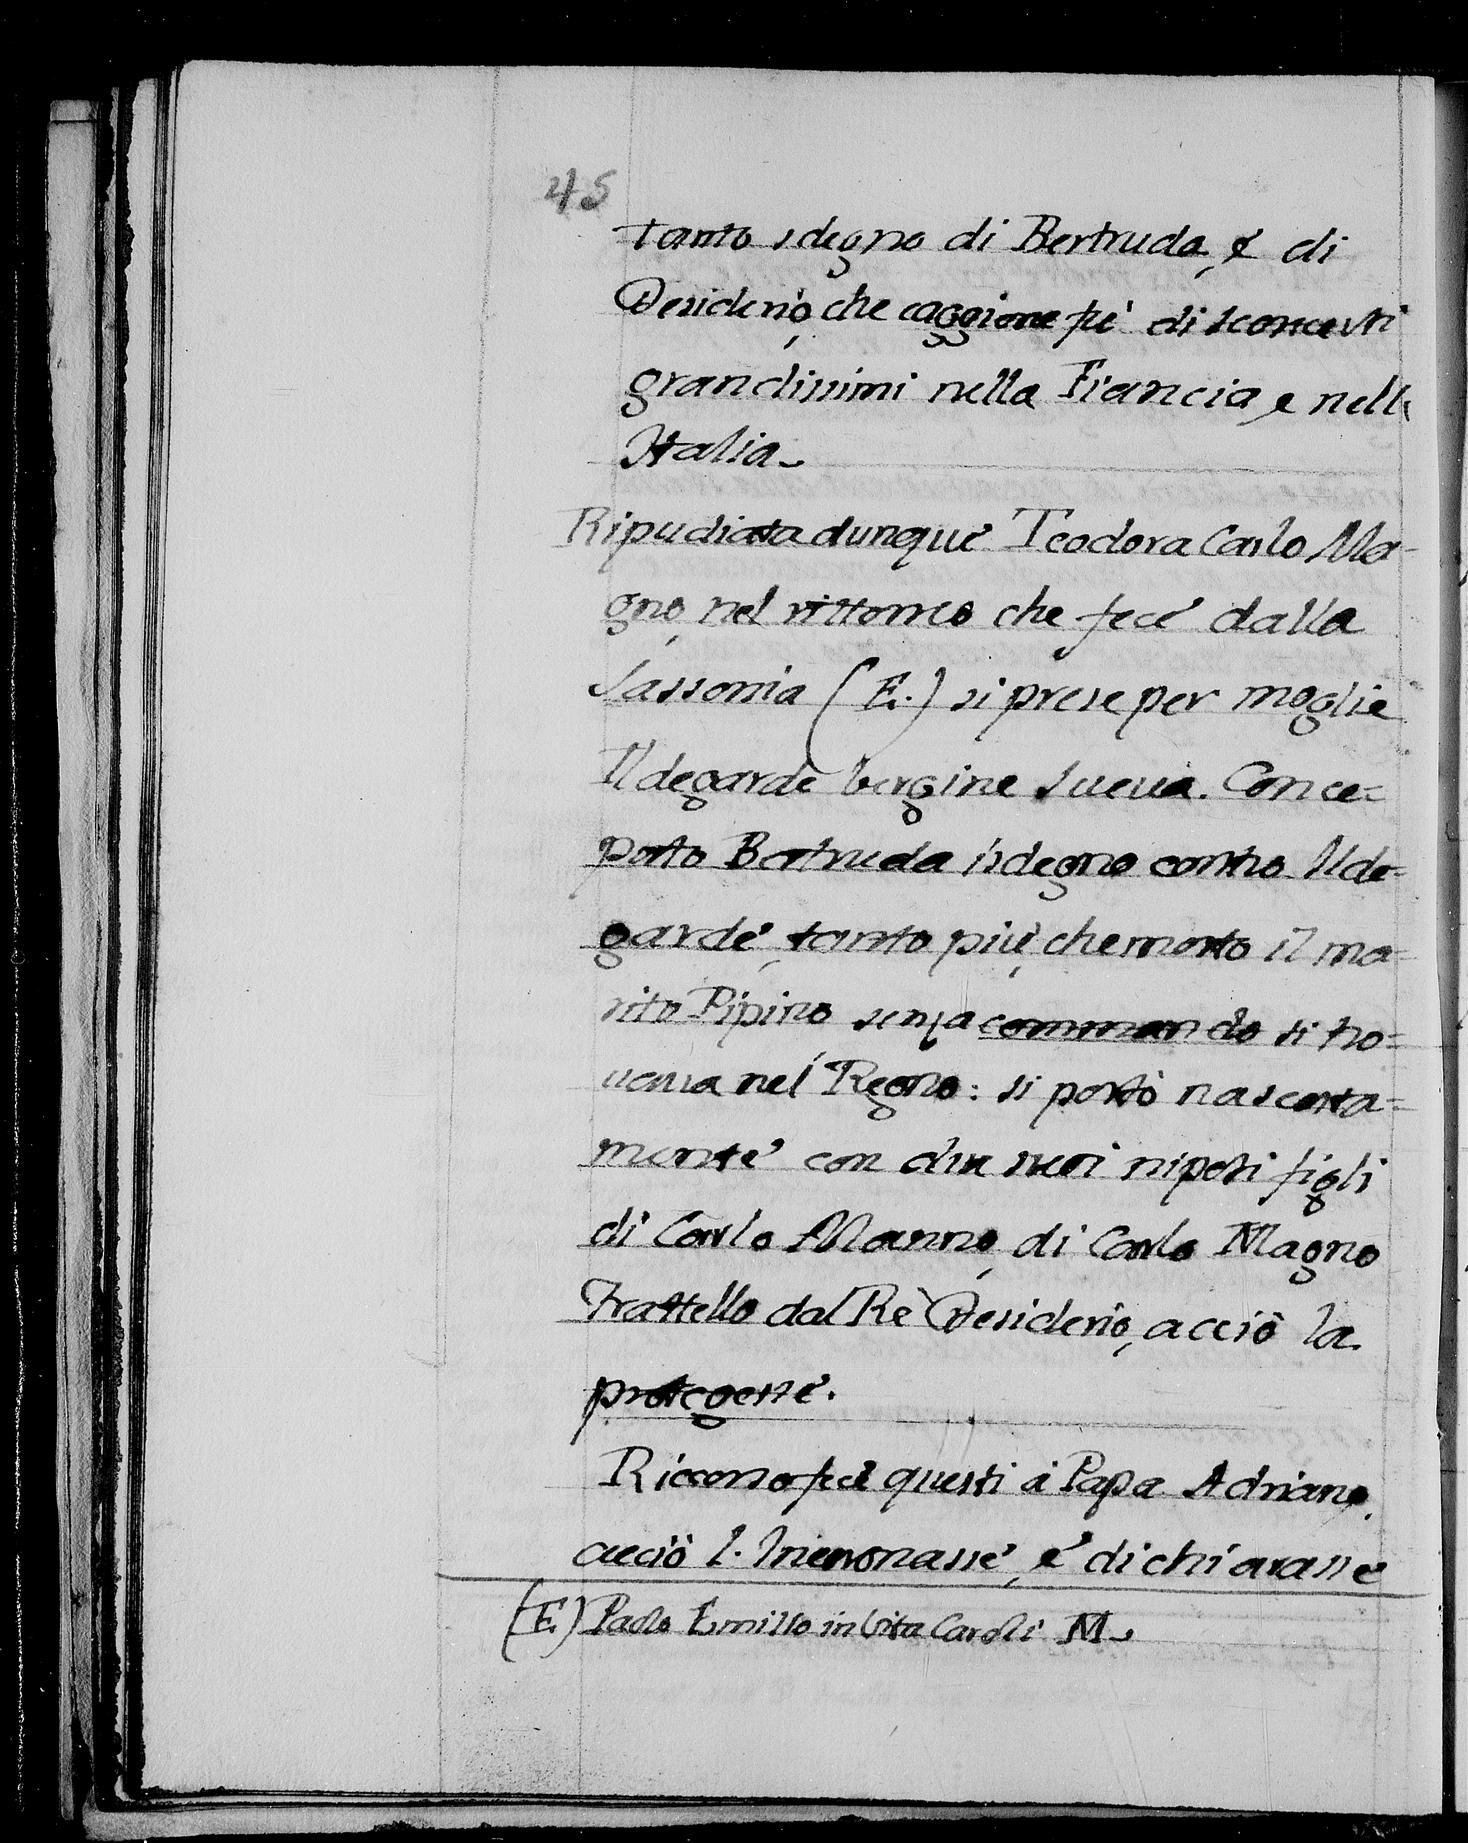 45
tanto sdegno di Bertruda, e di
Desiderio, che caggione fù di sconcerti
grandissimi nella Francia, e nell
Italia.
Ripudiata dunque Teodora Carlo Ma-
gno, nel rittorno che fece dalla
Sassonia (E.) si prese per moglie
Ildegarde Vergine Sueua. Conce-
puto Bertruda isdegno contro Ilde=
garde, tanto più, che morto il ma-
rito Pipino senza commando si tro=
ueua nel Regno: si portò nascosta=
mente con due suoi nipoti figli
di Carlo Manno, di Carlo Magno
Frattello dal Rè Desiderio, acciò la
protegesse.
Ricorso fece questi à Papa Adriano,
acciò l' Incoronasse, e dichiarasse
(E.) Paolo Emilio in Vita Caroli M.